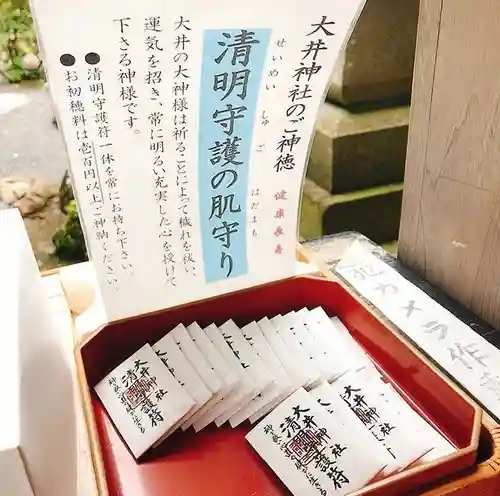 大井神社のご神徳
健康長寿
せいめい しゅご はだまも
清明守護の肌守り
大井の大神様は祈ることによって穢れを祓い、
運気を招き、常に明るい充実した心を授けて
下さる神様です。
●清明守護符一体を常にお持ち下さい。
●お初穂料は壱百円以上ご神納ください。
大井神社
清明守護符
大井神社
清明守護符
カメラ作